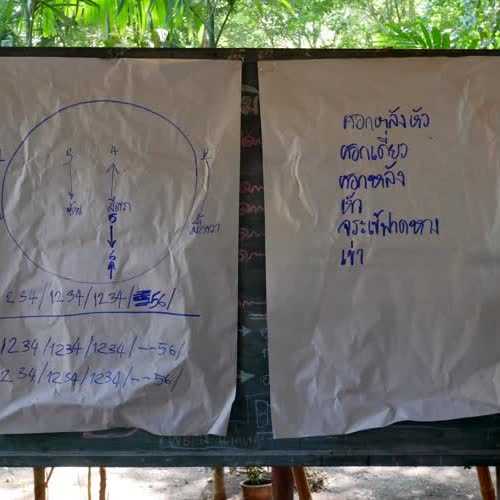 3 4 2
ซ้าย มือขวา
5
มือขวา
6
234/1234/1234/56/
1234/1234/1234/--56/
234/1234/1234/--56/
ศอกหลังหัว
ศอกเดี่ยว
ศอกหลัง
หัว
จระเข้ฟาดหาง
เข่า